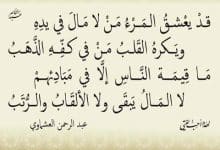 قد يعشق المرء من لا مال في يده
ويكره القلب من في كفه الذهب
ما قيمة الناس إلا في مبادئهم
لا المال يبقى ولا الألقاب والرتب
عبد الرحمن العشماوي